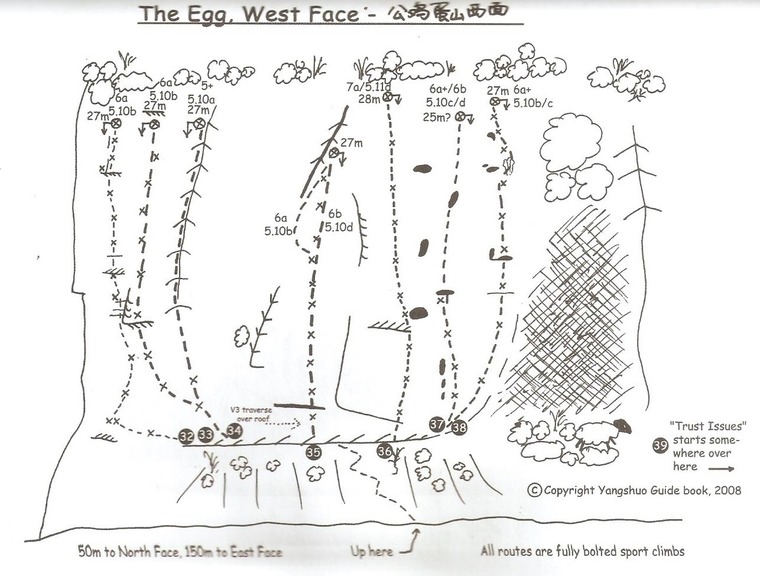 The Egg, West Face - 公鸡蛋山西面
7a/5.11d
28m
6a+/6b
5.10c/d
25m?
27m 6a+
5.10b/c
6a
5.10b
27m
6a
5.10b
27m
5+
5.10a
27m
27m
6a
5.10b
6b
5.10d
V3 traverse
over roof
32
33
34
35
36
37
38
39
"Trust Issues"
starts some-
where over
here
© Copyright Yangshuo Guide book, 2008
50m to North Face, 150m to East Face
Up here
All routes are fully bolted sport climbs